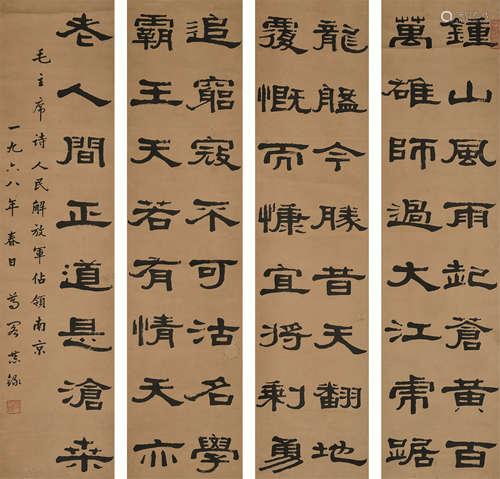 鍾山風雨起蒼黃百
萬雄師過大江虎踞
龍盤今勝昔天翻地
覆慨而慷宜將剩勇
追窮寇不可沽名學
霸王天若有情天亦
老人間正道是滄桑
毛主席诗人民解放軍佔領南京
一九六八年春日